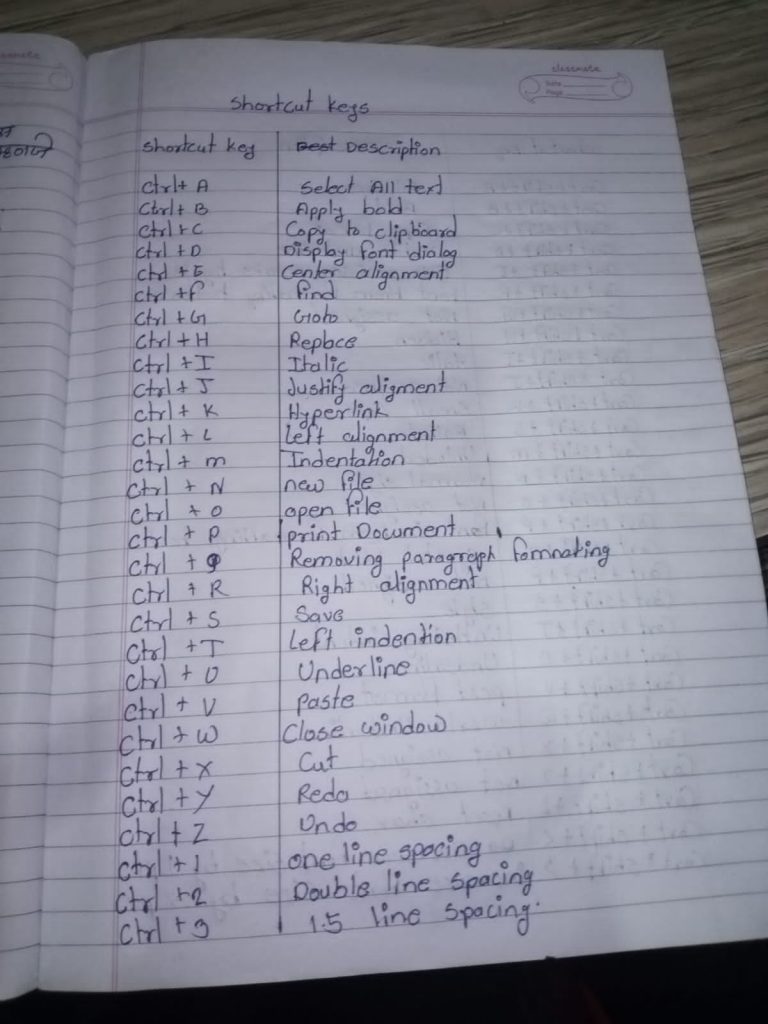 classmate
Date
Page
shortcut keys
shortcut key Best Description
Ctrl+ A Select All text
Ctrl+ B Apply bold
Ctrl+C Copy to clipboard
Ctrl +D Display font dialog
Ctrl +E Center alignment
Ctrl +f find
Ctrl +G Goto
Ctrl + H Replace
Ctrl + I Italic
Ctrl + J Justify aligment
Ctrl + K Hyperlink
Ctrl + L Left alignment
Ctrl + m Indentation
Ctrl + N new file
Ctrl + O open file
Ctrl + P print Document
Ctrl + Q Removing paragraph formnating
Ctrl + R Right alignment
Ctrl + S Save
Ctrl +T Left indention
Ctrl + U Underline
Ctrl + V paste
Ctrl + W Close window
Ctrl + X Cut
Ctrl + Y Redo
Ctrl + Z Undo
Ctrl +1 one line spacing
Ctrl +2 Double line spacing
Ctrl +3 1.5 line spacing.